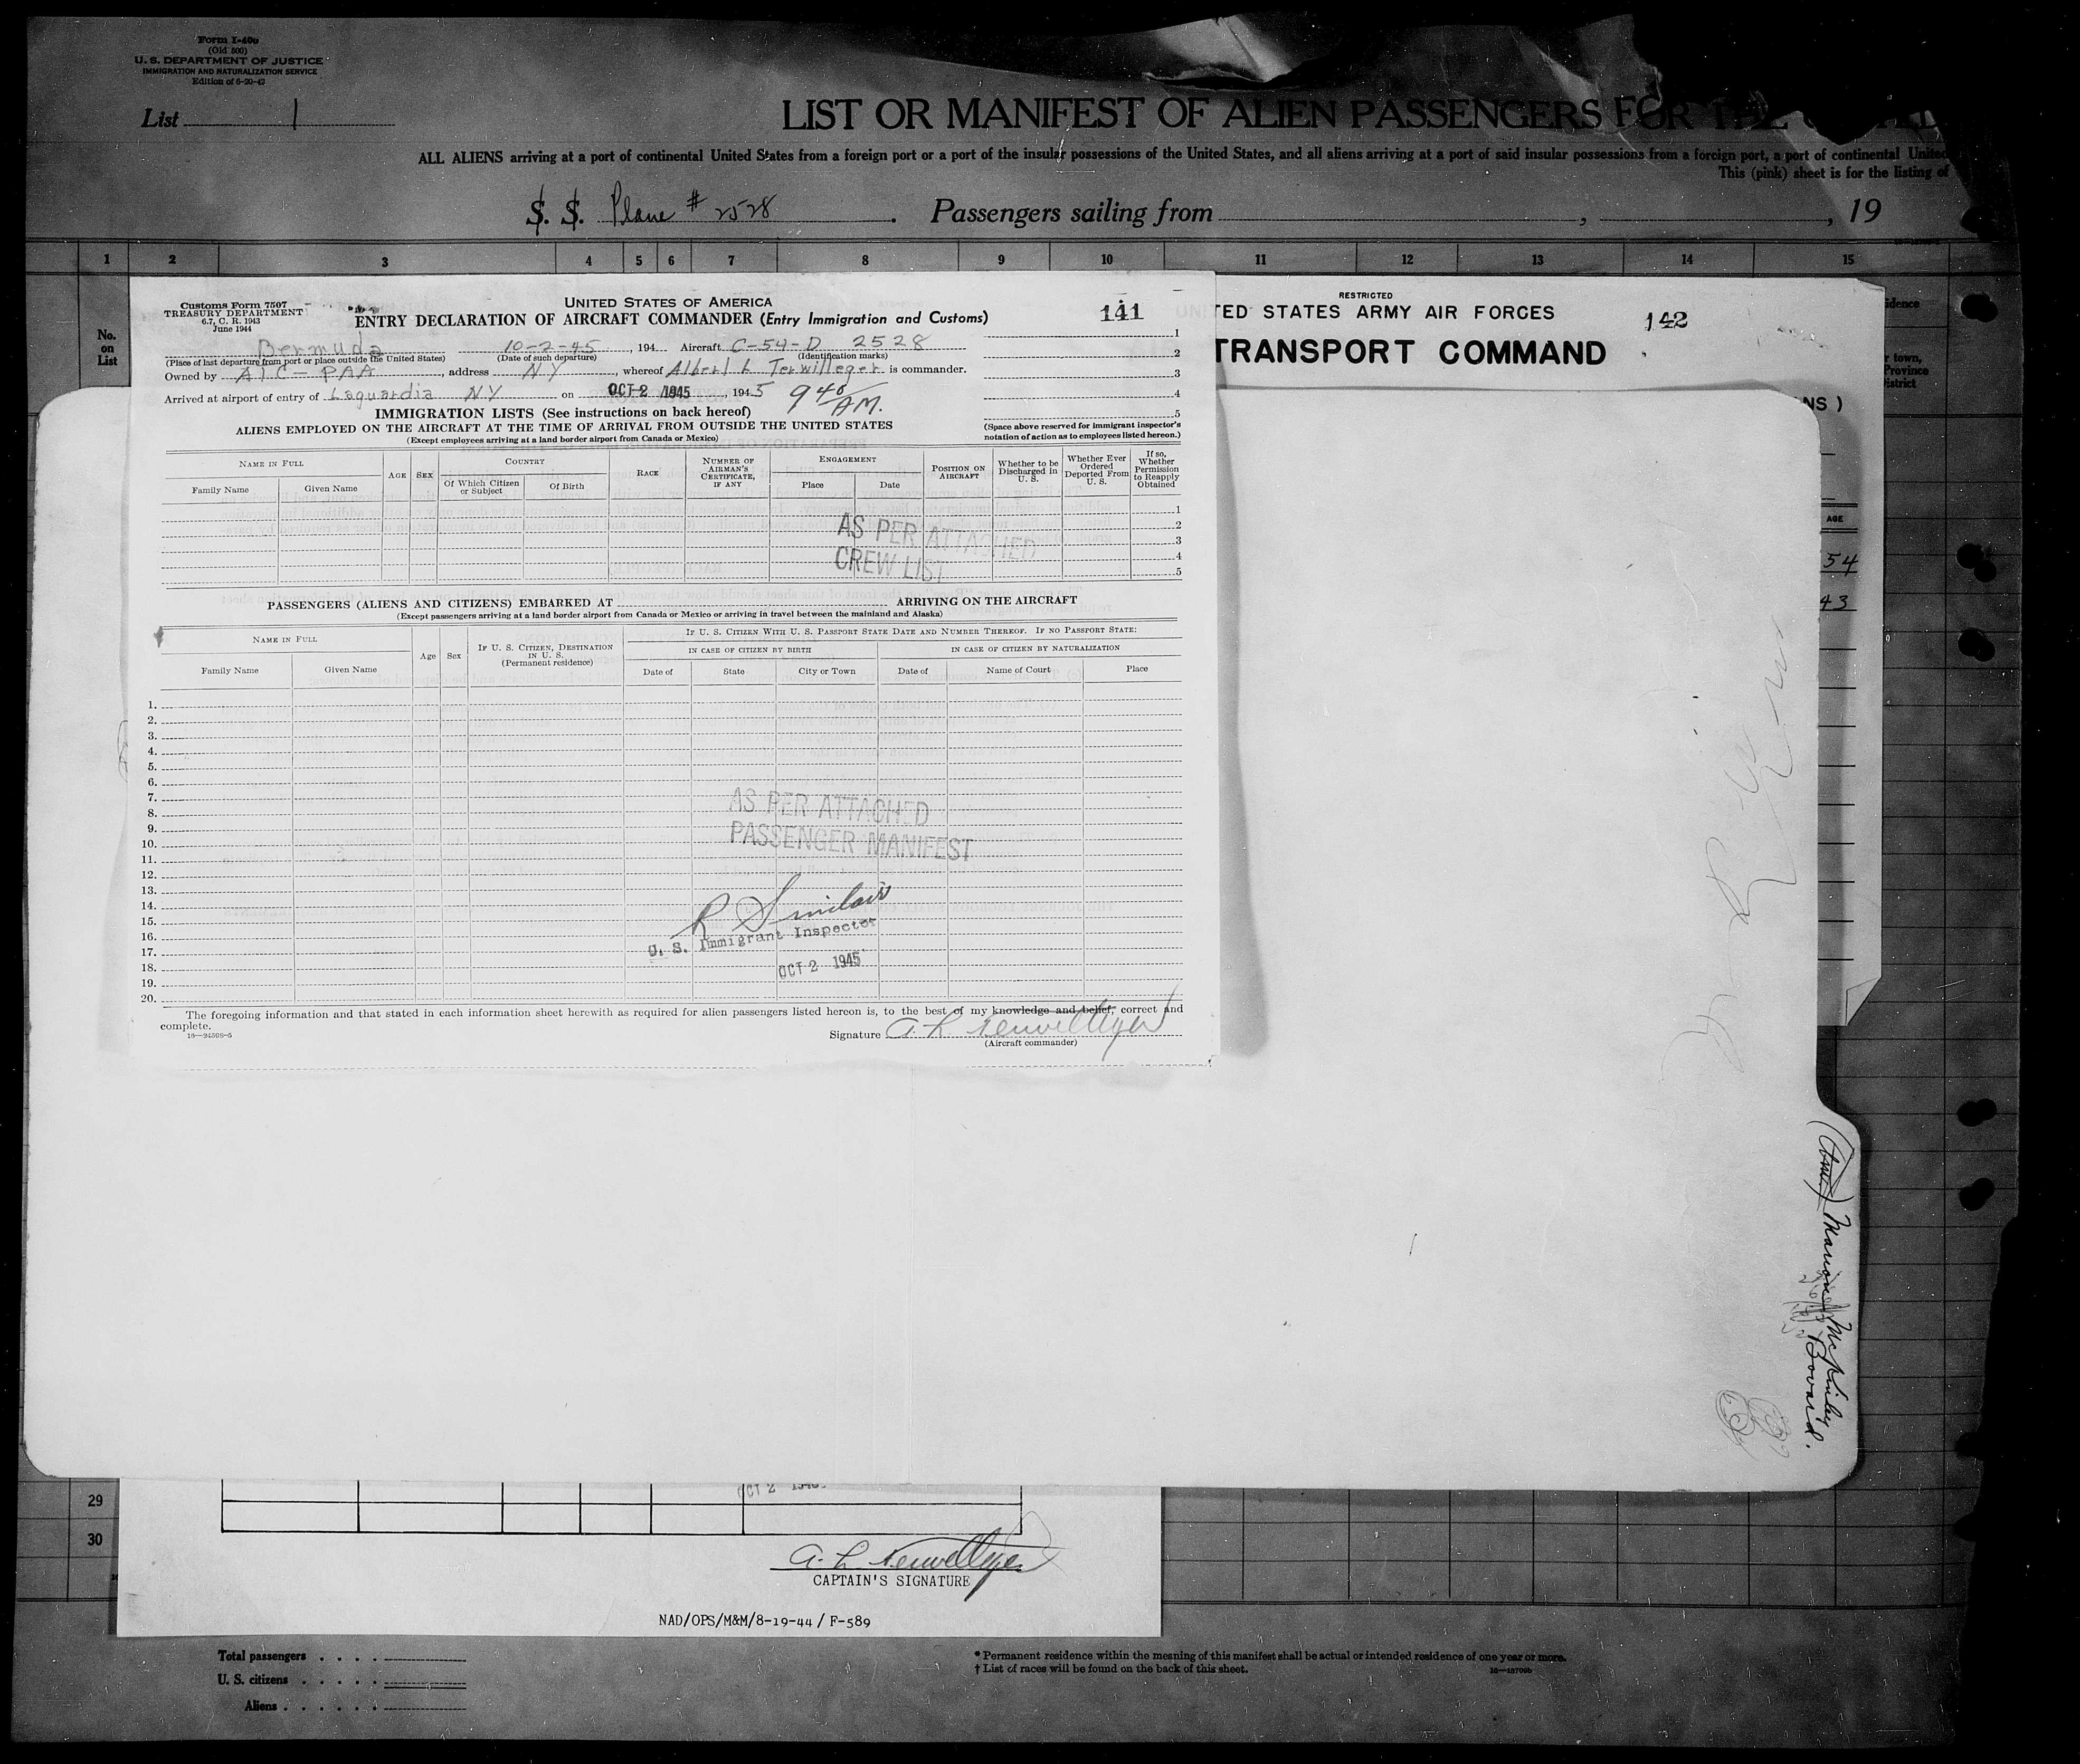 Form I-40b
(Old 500)
U. S. DEPARTMENT OF JUSTICE
IMMIGRATION AND NATURALIZATION SERVICE
List 1
LIST OR MANIFEST OF ALIEN PASSENGERS FOR THE
ALL ALIENS arriving at a port of continental United States from a foreign port or a port of the insular possessions of the United States, and all aliens arriving at a port of said insular possessions from a foreign port, a port of continental United
This (pink) sheet is for the listing of
S. S. Plane # 2528. Passengers sailing from , , 19
1 2 3 4 5 6 7 8 9 10 11 12 13 14 15
No. on List
Customs Form 7507
TREASURY DEPARTMENT
6.7, C. R. 1943
June 1944
UNITED STATES OF AMERICA
ENTRY DECLARATION OF AIRCRAFT COMMANDER (Entry Immigration and Customs)
141
Bermuda 10-2-45, 194 Aircraft C-54-D 2528
(Place of last departure from port or place outside the United States) (Date of such departure) (Identification marks)
Owned by ATC-PAA, address NY, whereof Albert L Terwilleger is commander.
Arrived at airport of entry of Laguardia NY on OCT 2 1945, 1945 940 AM.
1
2
3
4
5
IMMIGRATION LISTS (See instructions on back hereof)
ALIENS EMPLOYED ON THE AIRCRAFT AT THE TIME OF ARRIVAL FROM OUTSIDE THE UNITED STATES
(Except employees arriving at a land border airport from Canada or Mexico)
(Space above reserved for immigrant inspector's
notation of action as to employees listed hereon.)
NAME IN FULL
Family Name Given Name
AGE SEX
COUNTRY
Of Which Citizen or Subject Of Birth
RACE
NUMBER OF AIRMAN'S CERTIFICATE, IF ANY
ENGAGEMENT
Place Date
POSITION ON AIRCRAFT
Whether to be Discharged in U. S.
Whether Ever Ordered Deported From U. S.
If so, Whether Permission to Reapply Obtained
1
2
3
4
5
AS PER ATTACHED
CREW LIST
PASSENGERS (ALIENS AND CITIZENS) EMBARKED AT ARRIVING ON THE AIRCRAFT
(Except passengers arriving at a land border airport from Canada or Mexico or arriving in travel between the mainland and Alaska)
NAME IN FULL
Family Name Given Name
Age Sex
IF U. S. CITIZEN, DESTINATION IN U. S.
(Permanent residence)
IF U. S. CITIZEN WITH U. S. PASSPORT STATE DATE AND NUMBER THEREOF. IF NO PASSPORT STATE:
IN CASE OF CITIZEN BY BIRTH IN CASE OF CITIZEN BY NATURALIZATION
Date of State City or Town Date of Name of Court Place
1.
2.
3.
4.
5.
6.
7.
8.
9.
10.
11.
12.
13.
14.
15.
16.
17.
18.
19.
20.
AS PER ATTACHED
PASSENGER MANIFEST
R Sinclair
U. S. Immigrant Inspector
OCT 2 1945
The foregoing information and that stated in each information sheet herewith as required for alien passengers listed hereon is, to the best of my knowledge and belief, correct and
complete.
Signature A. L. Terwilleger
(Aircraft commander)
RESTRICTED
UNITED STATES ARMY AIR FORCES
142
TRANSPORT COMMAND
NS )
idence
r town,
Province
istrict
AGE
54
43
Marion McKinley
Bovard.
29
30
OCT 2 1945
A. L. Terwilleger
CAPTAIN'S SIGNATURE
NAD/OPS/M&M/8-19-44 / F-589
Total passengers
U. S. citizens
Aliens
* Permanent residence within the meaning of this manifest shall be actual or intended residence of one year or more.
† List of races will be found on the back of this sheet.